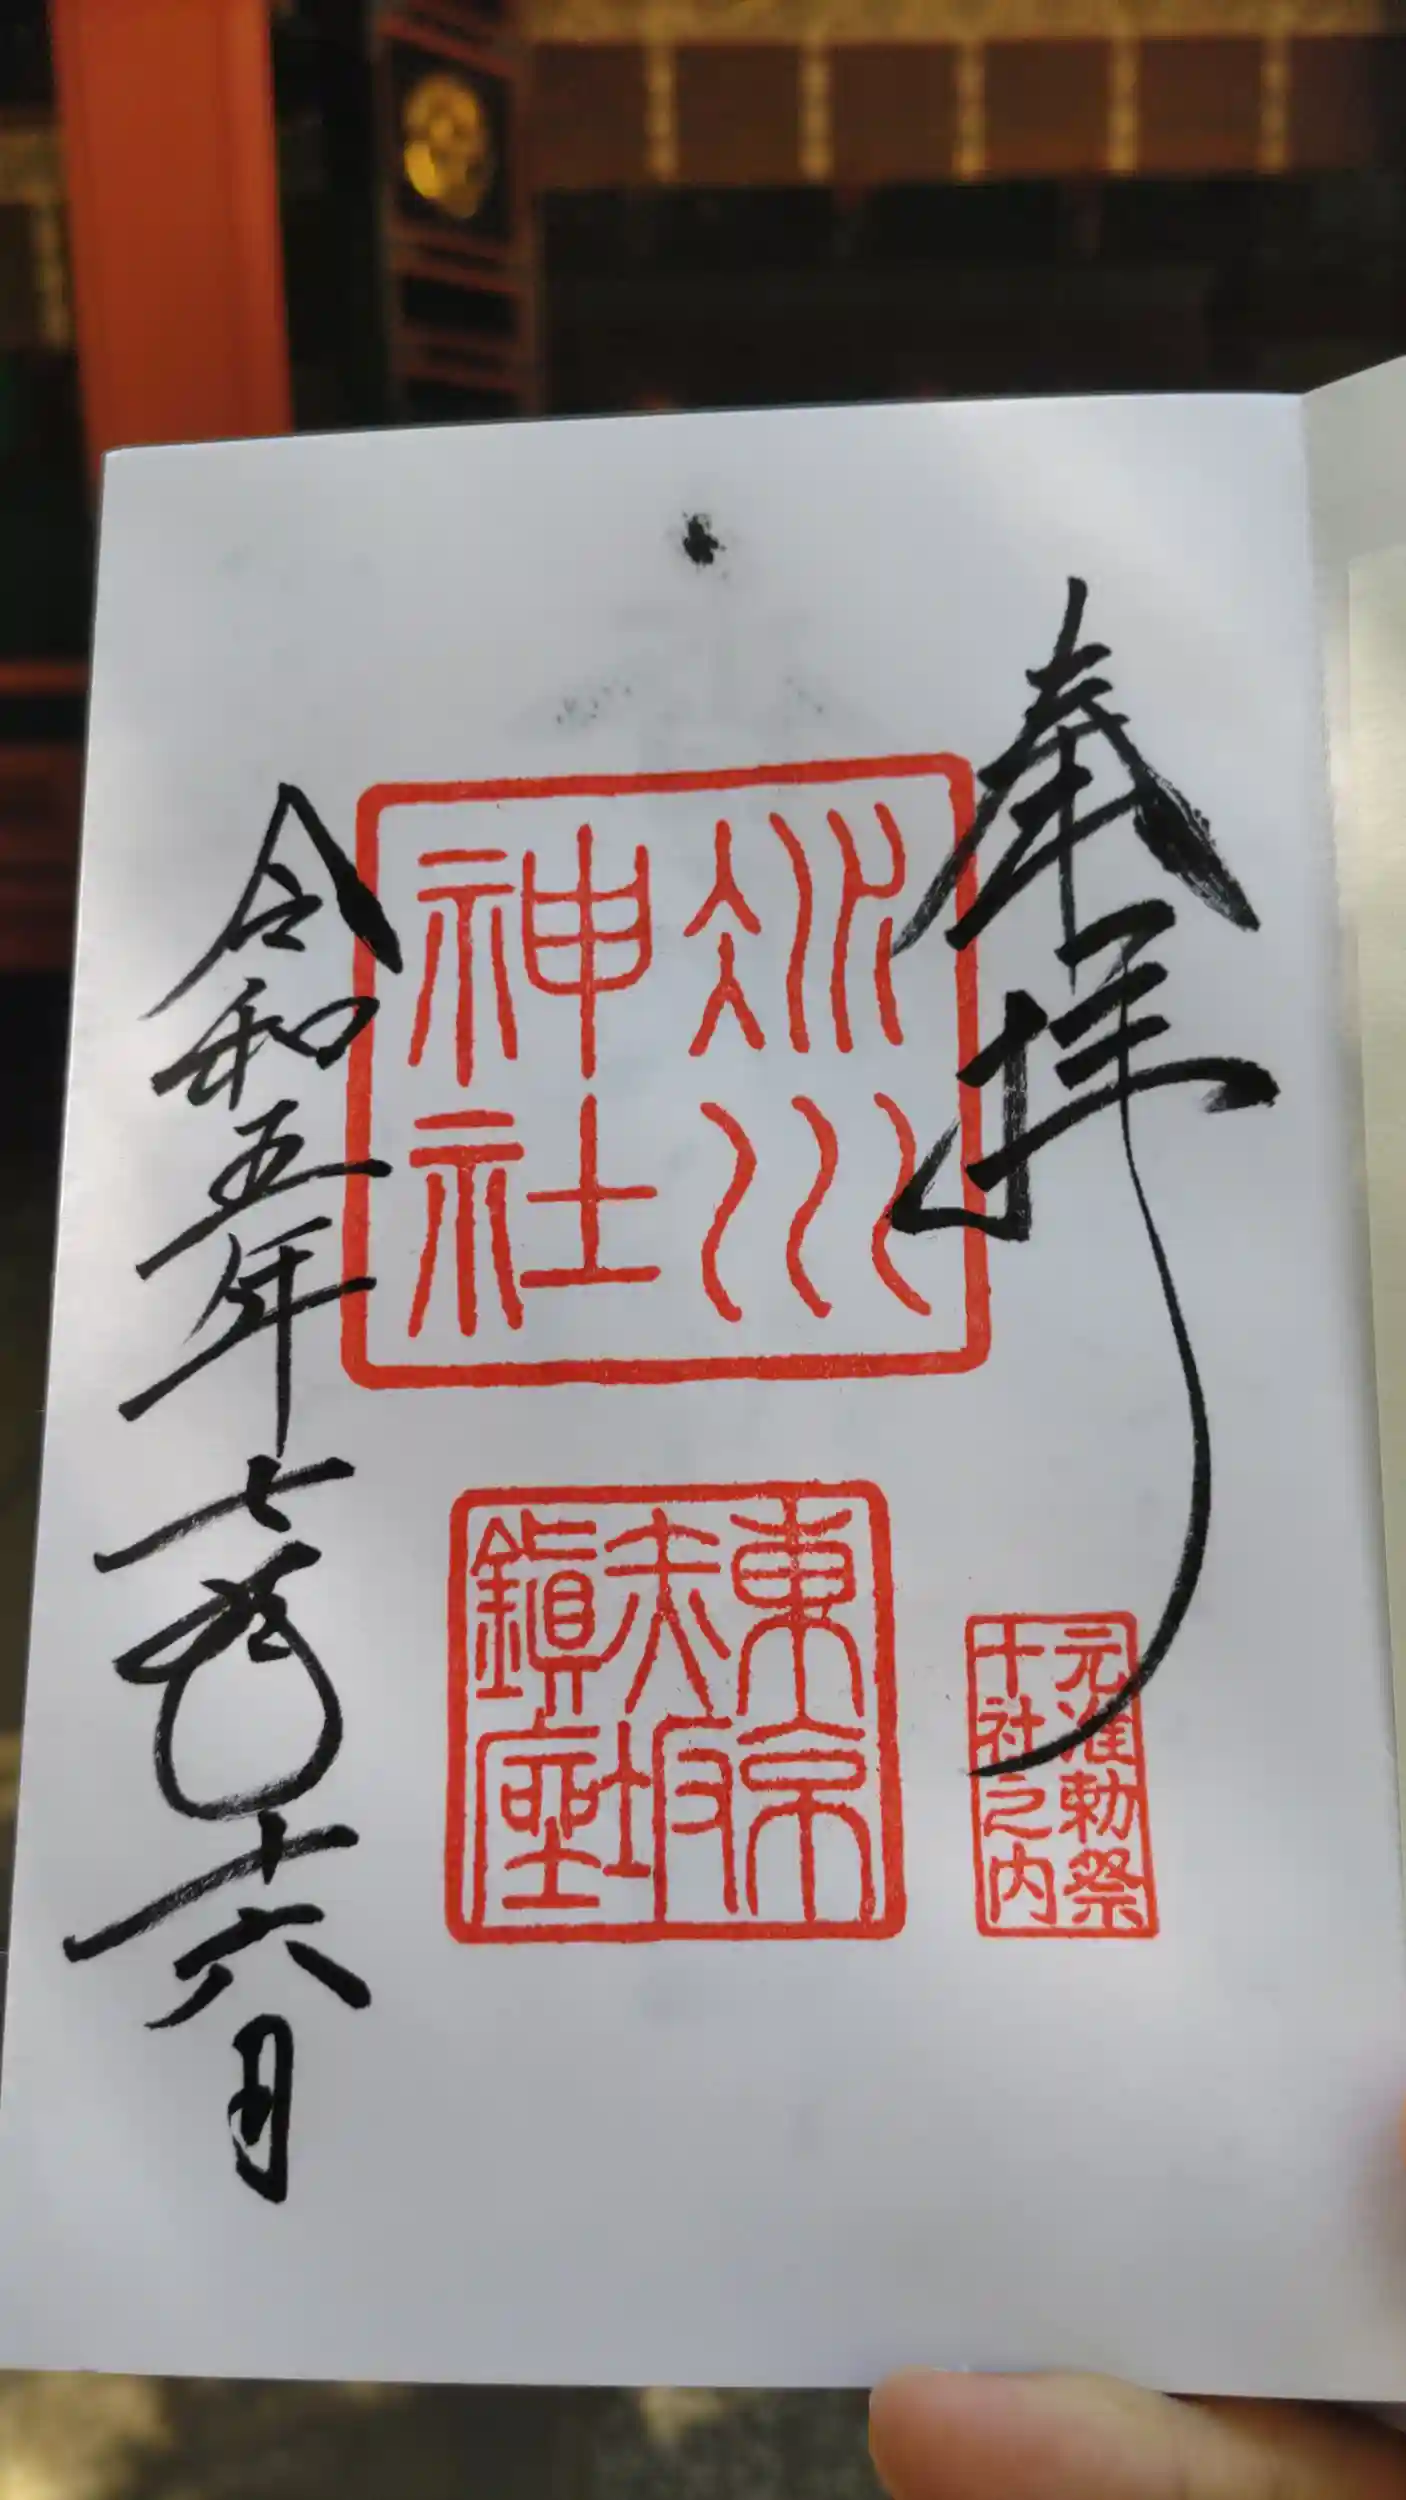 奉拝
冰川
神社
東京
赤坂
鎭座
元准勅祭
十社之内
令和五年七月十六日